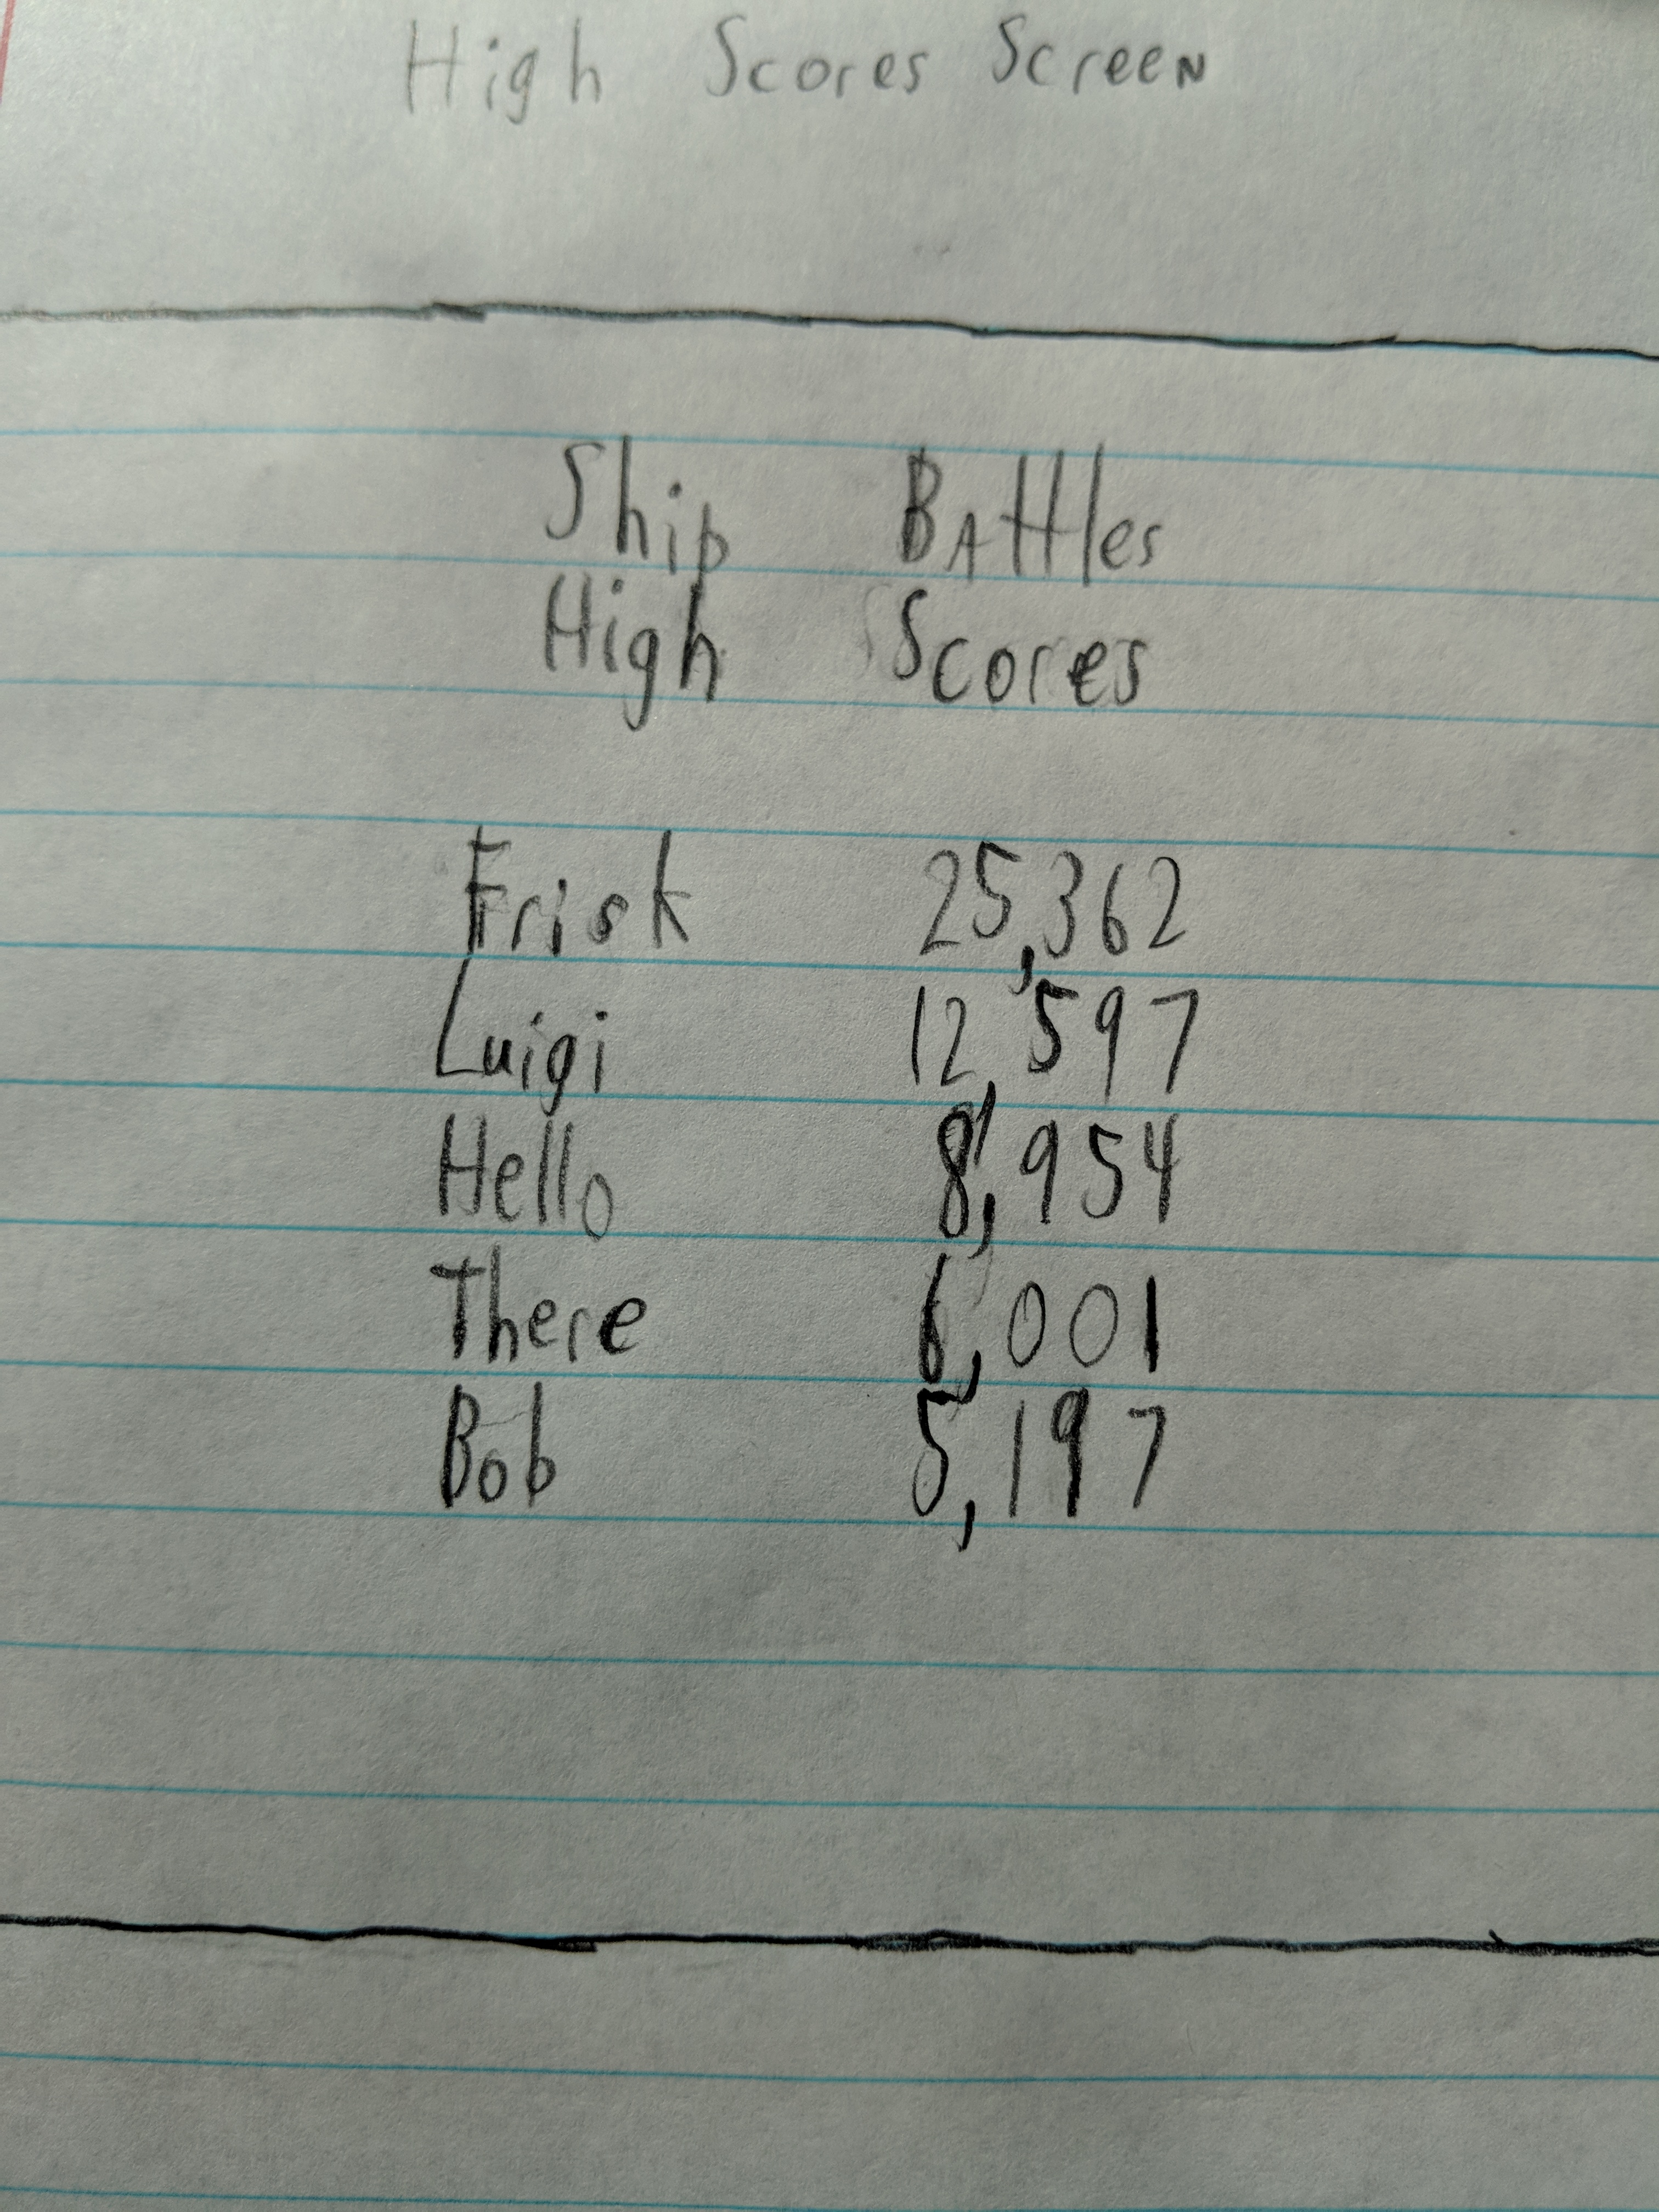 High Scores Screen
Ship Battles
High Scores
Frisk 25,362
Luigi 12,597
Hello 8,954
There 6,001
Bob 5,197